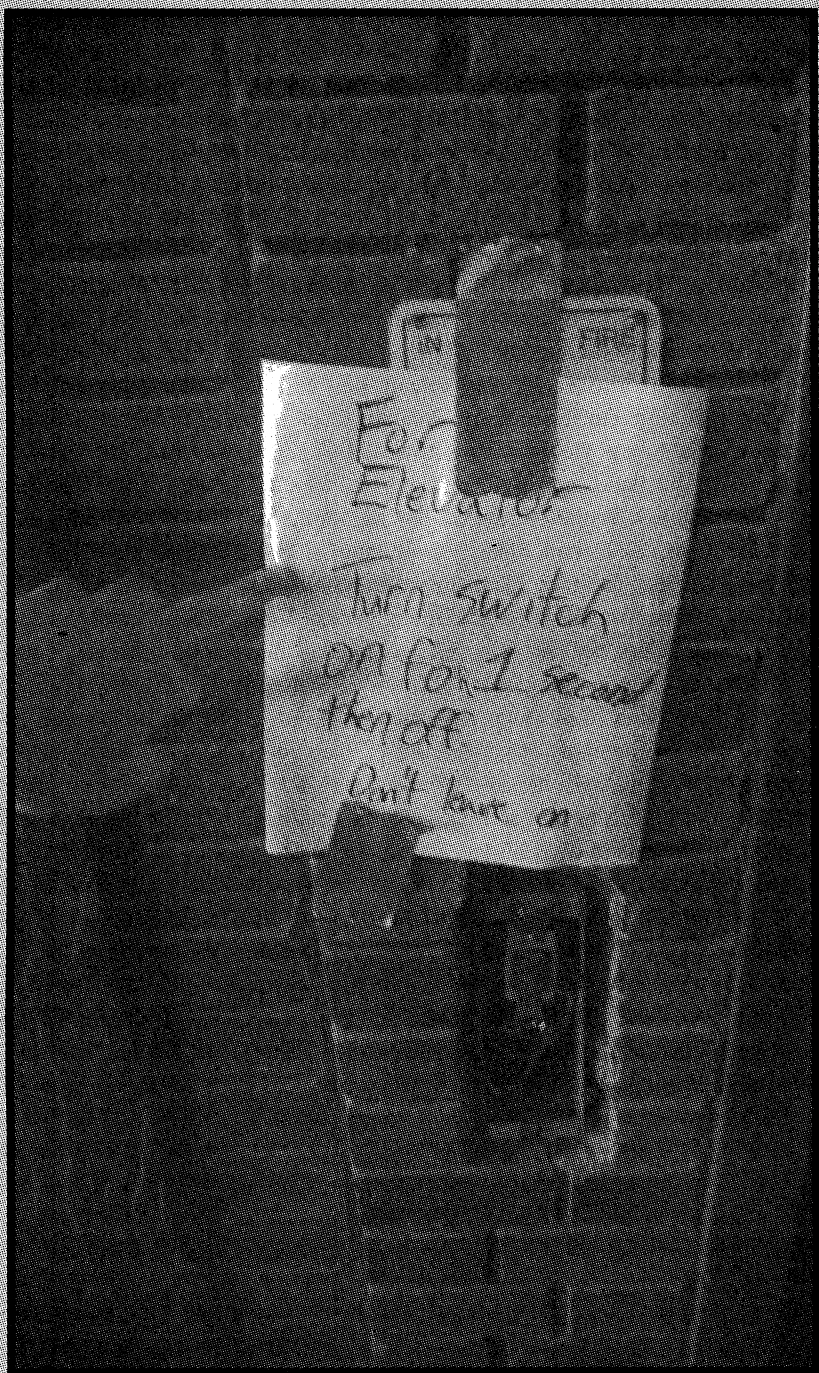 IN FIRE
For
Elevator
Turn switch
on for 1 second
then off
Don't leave on